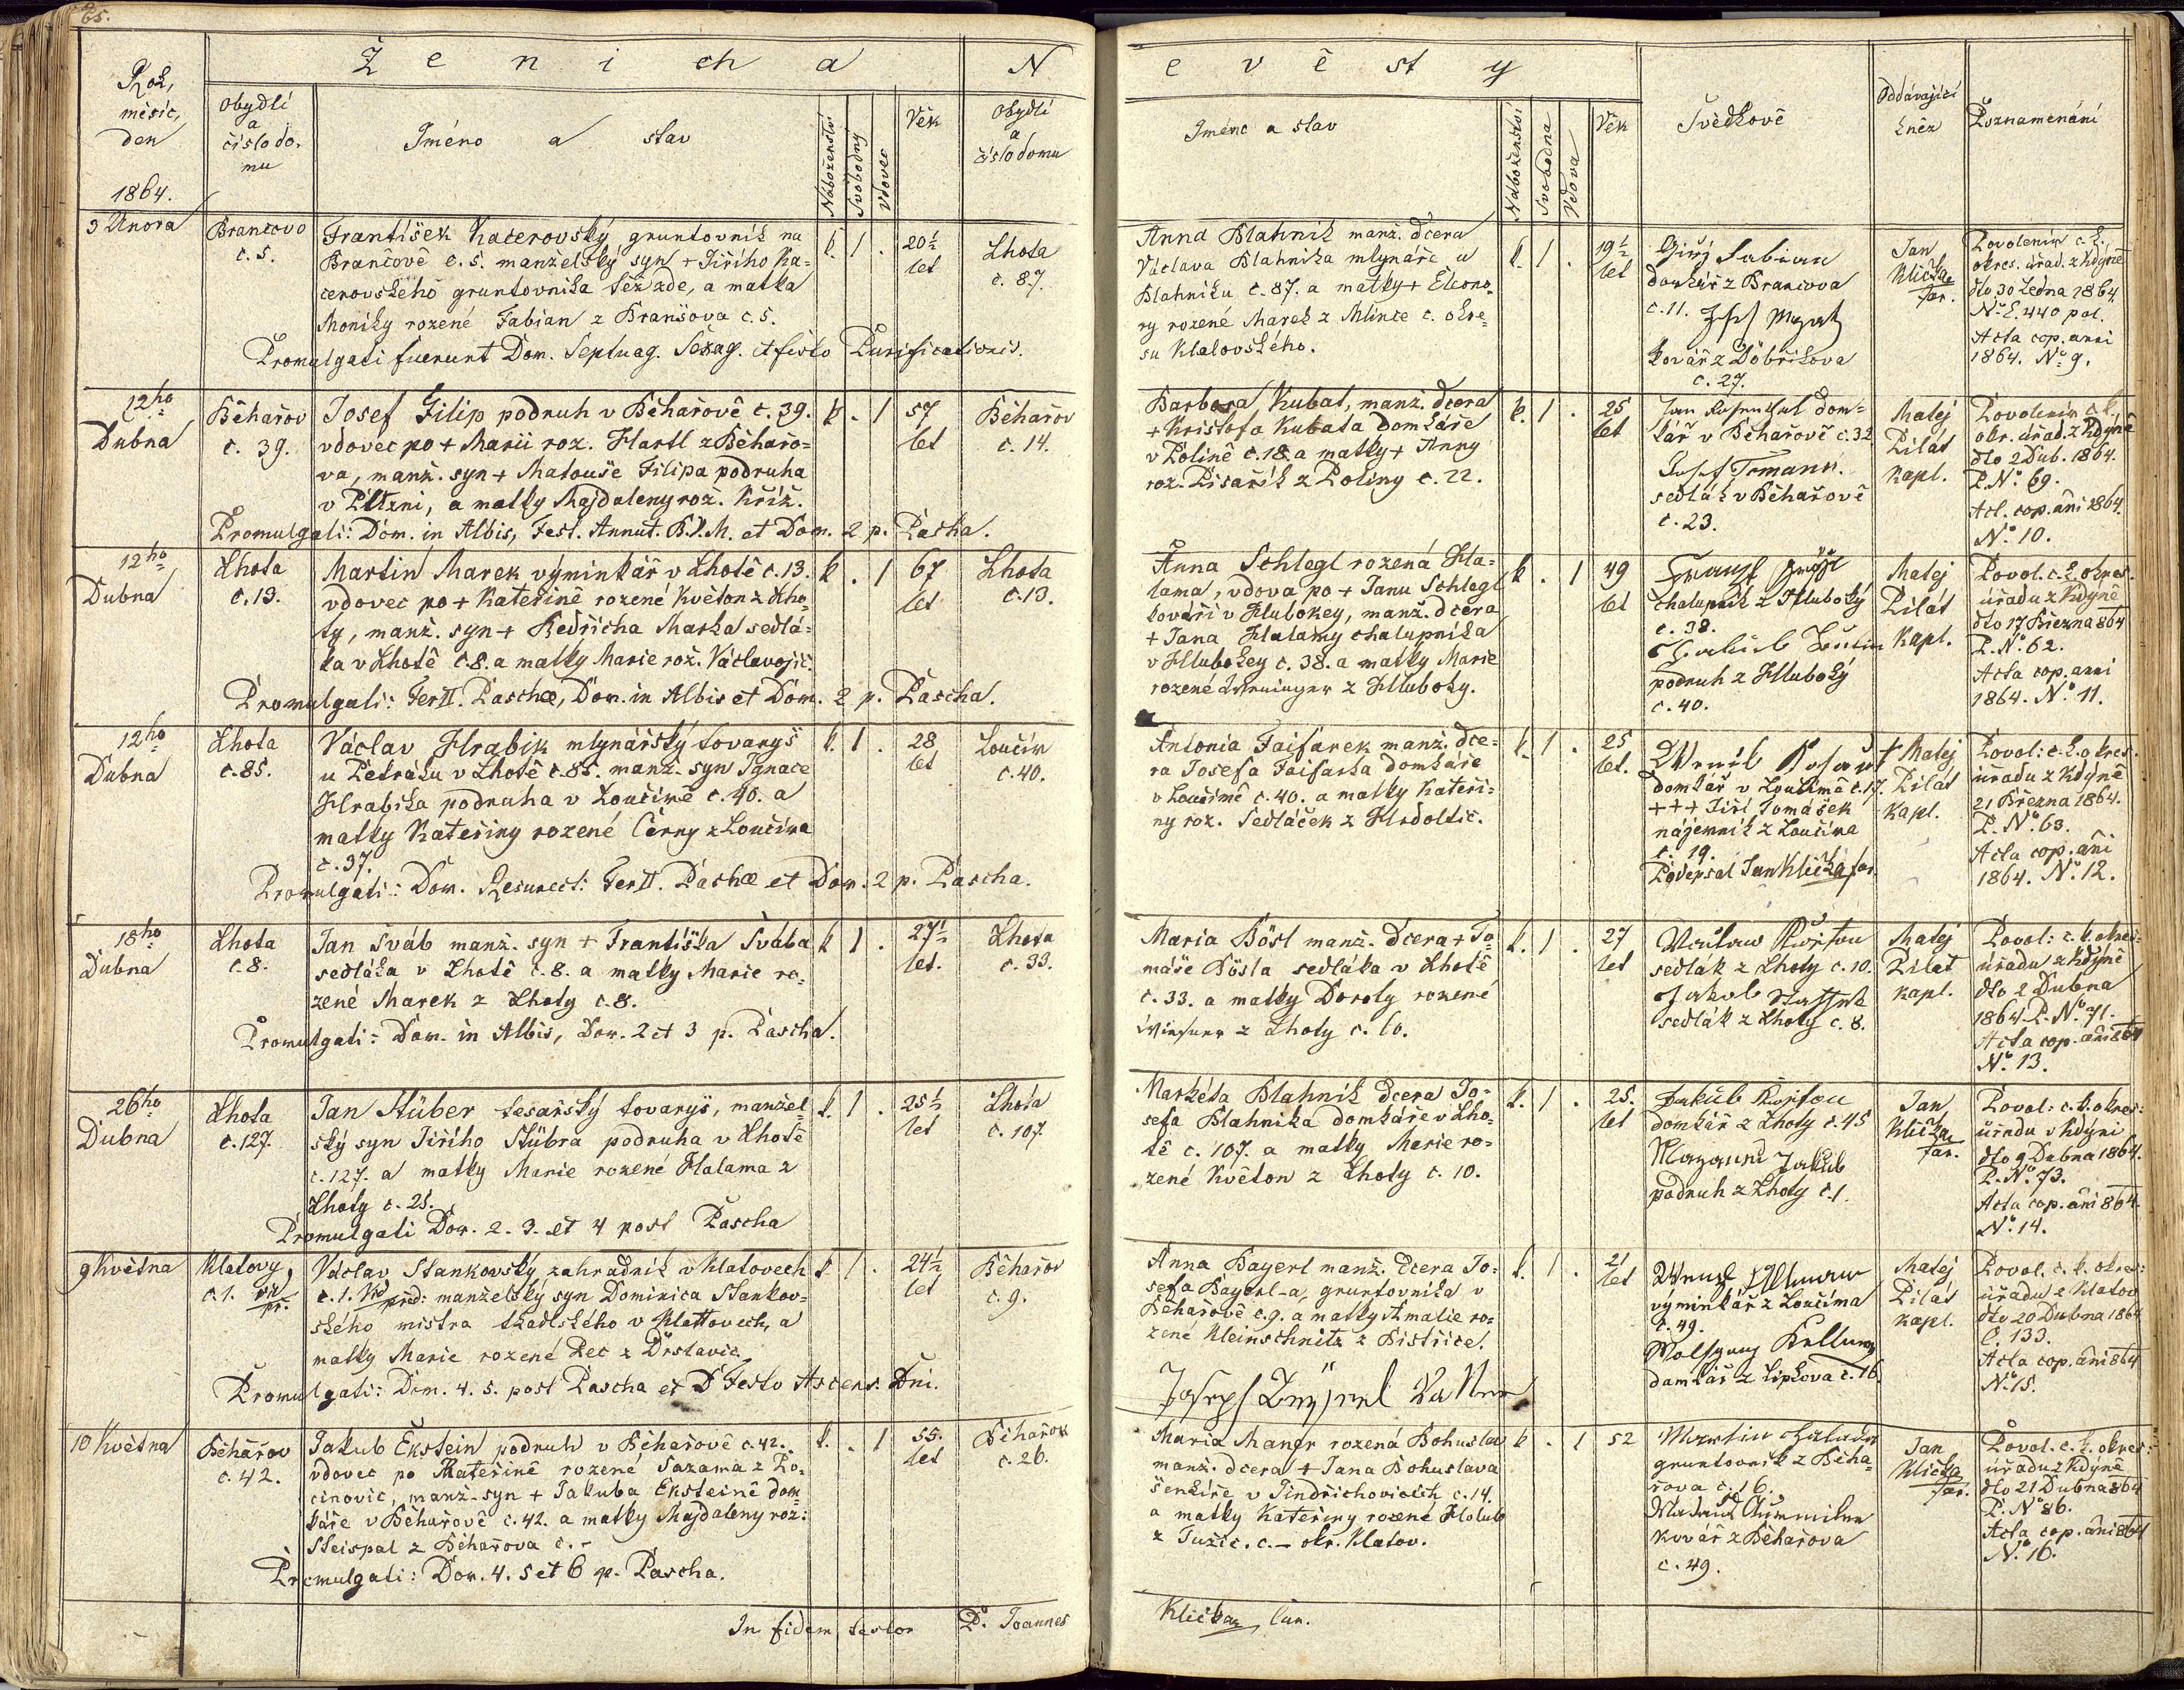 65.
Ženicha
Nevěsty
Rok, měsíc, den
1864.
Obydlí a číslo domu
Jméno a stav
Náboženství
Svobodný
Vdovec
Věk
Obydlí a číslo domu
Jméno a stav
Náboženství
Svobodna
Vdova
Věk
Svědkově
Oddávající kněz
Poznamenání
3 Února
Brančovo
č. 5.
František Kacerovský gruntovník na
Brančově č. 5. manželský syn + Jiřího Ka=
cerovského gruntovníka též zde, a matka
Moniky rozené Fabian z Branšova č. 5.
Promulgati fuerunt Dom. Septuag. Sexag. et festo Purificationis.
k. 1 .
20½
let
Lhota
č. 87.
Anna Blahnik manž. dcera
Václava Blahnika mlynáře u
Blahniku č. 87. a matky + Eleono=
ry rozené Marek z Mlince č. okre=
su Klatovského.
k. 1 .
19½
let
Jiří Fabian
domkář z Brancova
č. 11.
kovář z Dobřikova
č. 27.
Jan
Klička
far.
Povolením c. k.
okres. úřad. z Kdýně
dto 30 Ledna 1864
No E. 440 pol.
Acta cop. anni
1864. No 9.
12ho
Dubna
Běhařov
č. 39.
Josef Filip podruh v Běhařově č. 39.
vdovec po + Marii roz. Hartl z Běhařo=
va, manž. syn + Matouše Filipa podruha
v Plzni, a matky Majdaleny rož. Kříž.
Promulgati: Dom. in Albis, Fest. Annut. B.V.M. et Dom. 2 p. Pascha.
k . 1
57
let
Běhařov
č. 14.
Barbora Kubat, manž. dcera
+ Kristofa Kubata domkáře
v Polině č. 18. a matky + Anny
roz. Pisařík z Poliny č. 22.
k. 1 .
25
let
Jan Rosenthal dom=
kář v Běhařově č. 32
Josef Tomann.
sedlák v Běhařově
č. 23.
Matej
Pilát
kapl.
Povolením c. k.
okr. úřad. z Kdýně
dto 2 Dub. 1864.
P. No 69.
Act. cop. ani 1864.
No 10.
12ho
Dubna
Lhota
č. 13.
Martin Marek výminkář v Lhotě č. 13.
vdovec po + Kateřině rozené Květon z Lho=
ty, manž. syn + Bedřicha Marka sedlá=
ka v Lhotě č. 8. a matky Marie rož. Václavojič.
Promulgati: Fer II. Paschæ, Dom. in Albis et Dom. 2 p. Pascha.
k . 1
67
let
Lhota
č. 13.
Anna Schlegl rozená Hla=
lama, vdova po + Janu Schlegl
kováři v Hlubokey, manž. dcera
+ Jana Halamy chalupníka
v Hlubokey č. 38. a matky Marie
rozené z Hluboky.
k . 1
49
let
Franz
chalupník z Hluboky
č. 38.
Jakub
podruh z Hluboky
č. 40.
Matej
Pilát
kapl.
Povol. c. k. okres.
úřadu z Kdýně
dto 17 Března 864
P. No 62.
Acta cop. anni
1864. No 11.
12ho
Dubna
Lhota
č. 85.
Václav Hrabik mlynářský tovaryš
u Petráku v Lhotě č. 85. manž. syn Ignace
Hrabika podruha v Loučimě č. 40. a
matky Kateřiny rozené Černy z Loučima
č. 37.
Promulgati: Dom. Resurect: Fer II. Pashæ et Dom. 2 p. Pascha.
k. 1 .
28
let
Loučim
č. 40.
Antonia Faifarek manž. dce=
ra Josefa Faifarka domkáře
v Loučimě č. 40. a matky Kateři=
ny roz. Sedláček z Hrdoltic.
k. 1 .
25
let.
domkář v Loučimě č. 17.
+++ Jiří Tomášek
nájemník z Loučima
č. 19.
Podepsal Jan Klička far.
Matej
Pilát
kapl.
Povol: c. k. okres.
úřadu z Kdýně
21 Března 1864.
P. No 63.
Acta cop. ani
1864. No 12.
18ho
Dubna
Lhota
č. 8.
Jan Šváb manž. syn + Františka Švába
sedláka v Lhotě č. 8. a matky Marie ro=
zené Marek z Lhoty č. 8.
Promulgati: Dom. in Albis, Dom. 2 et 3 p. Pascha.
k 1 .
27½
let.
Lhota
č. 33.
Maria Bösl manž. dcera + To=
máše Bösla sedláka v Lhotě
č. 33. a matky Doroty rozené
z Lhoty č. 60.
k. 1 .
27
let
Květon
sedlák z Lhoty č. 10.
Jakob
sedlák z Lhoty č. 8.
Matej
Pilat
kapl.
Povol: c. k. okres=
úřadu z Kdýně
dto 2 Dubna
1864 P. No 71.
Acta cop. ani 864
No 13.
26ho
Dubna
Lhota
č. 127.
Jan Stüber tesařský tovaryš, manžel=
ský syn Jiřího Stübra podruha v Lhotě
č. 127. a matky Marie rozené Halama z
Lhoty č. 25.
Promulgati Dom. 2. 3. et 4 post Pascha
k. 1 .
25½
let
Lhota
č. 107.
Markéta Blahnik dcera Jo=
sefa Blahnika domkáře v Lho=
tě č. 107. a matky Marie ro=
zené Květon z Lhoty č. 10.
k. 1 .
25.
let
Jakub Kwĕton
domkář z Lhoty č. 45
Mazanní Jakub
podruh z Lhoty č. 1.
Jan
Klička
far.
Povol: c. k. okres:
úřadu v Kdýni
dto 9 Dubna 1864.
P. No 73.
Acta cop. ani 864.
No 14.
9 Května
Klatovy,
č. 1.
Václav Stankovský zahradník v Klatovech
č. 1. Víd. před: manželský syn Dominica Stankov=
ského mistra tkadlského v Klattovech, a
matky Marie rozené Pec z Drslavic.
Promulgati: Dom. 4. 5. post Pascha et D Festo Ascens. Dni.
k 1 .
24½
let
Běhařov
č. 9.
Anna Bayerl manž. dcera Jo=
sefa Bayerl-a, gruntovníka v
Běhařově č. 9. a matky Amalie ro=
zené Kleinschnitz z Bistřice.
Joseph Vatter
k. 1 .
21
let
Wenzl
výminkář z Loučima
č. 49.
Wolfgang
domkář z Lipkova č. 16.
Matej
Pilát
kapl.
Povol. c. k. okre=
úřadu z Klatov
dto 20 Dubna 1864
Č. 133.
Acta cop. ani 864
No 15.
10 Května
Běhařov
č. 42.
Jakub Ekstein podruh v Běhařově č. 42.
vdovec po Kateřině rozené Sazama z Po=
cinovic, manž. syn + Jakuba Eksteině dom=
káře v Běhařově č. 42. a matky Majdaleny roz:
Steispal z Běhařova č. -
Promulgati: Dom. 4. 5 et 6 p. Pascha.
k. . 1
55.
let
Běhařov
č. 26.
Maria Mangr rozená Bohuslav
manž. dcera + Jana Bohuslava
šenkíře v Jindřichovicích č. 14.
a matky Kateřiny rozené Holub
z Tužic. č. - okr. Klatov.
k . 1
52
Martin
gruntovník z Běha=
řova č. 16.
kovář z Běhařova
č. 49.
Jan
Klička
far.
Povol. c. k. okres:
úřadu z Kdýně
dto 21 Dubna 864
P. No 86.
Acta cop. ani 864
No 16.
In fidem testor P. Joannes
Klička, Cur.